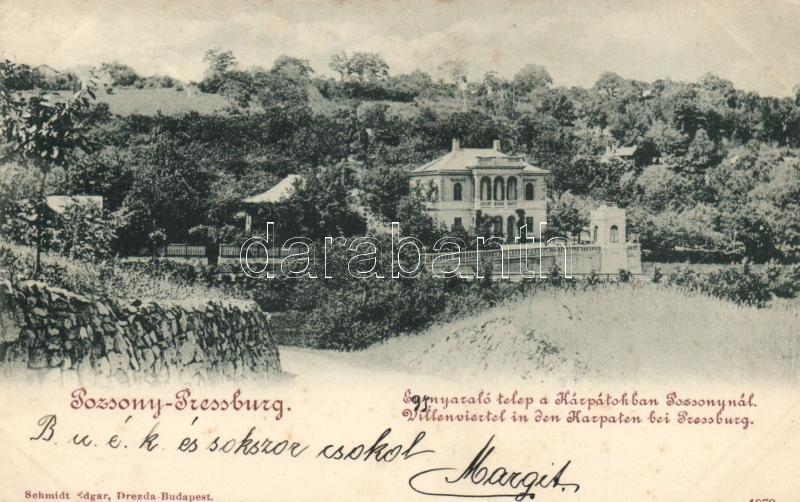 darabanth
Pozsony-Pressburg.
Egy nyaraló telep a Kárpátokban Pozsonynál.
Villenviertel in den Karpaten bei Pressburg.
B. u. é. k. és sokszor csokol
Margit.
Schmidt Edgar, Drezda-Budapest.